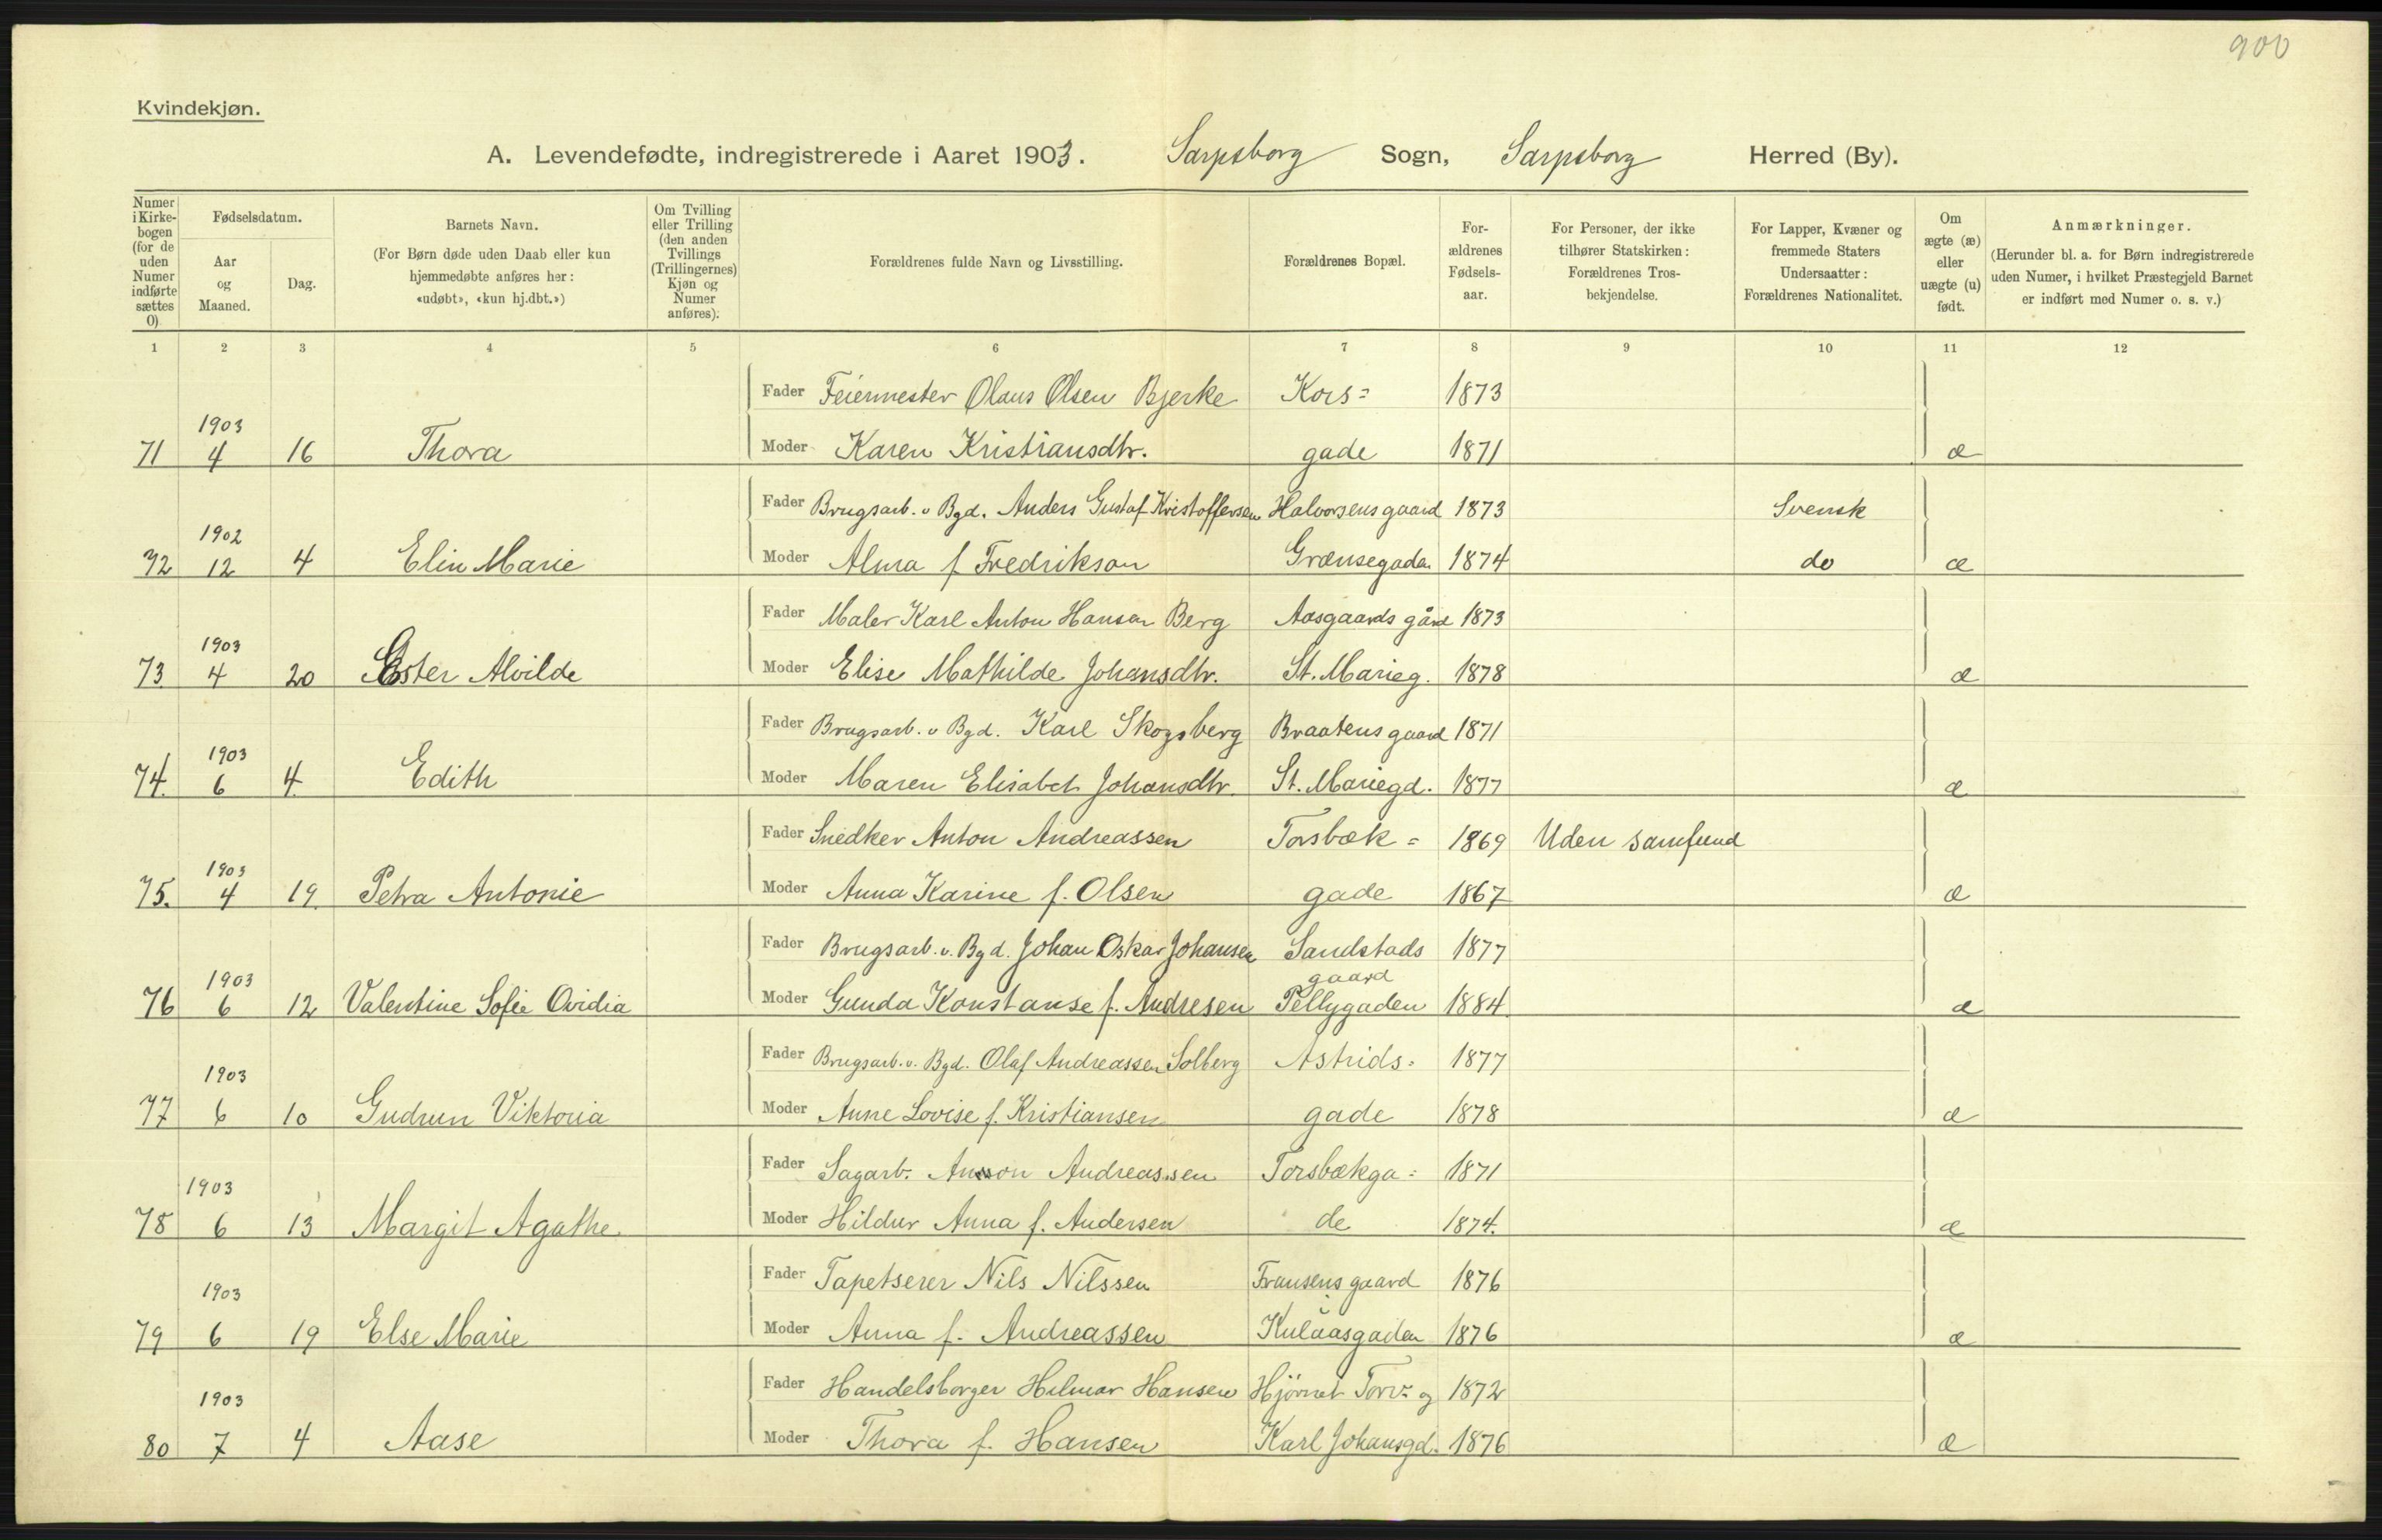 900
Kvindekjøn.
A. Levendefødte, indregistrerede i Aaret 1903. Sarpsborg Sogn, Sarpsborg Herred (By).
Numer i Kirkebogen (for de uden Numer indførte sættes 0) | Fødselsdatum. Aar og Maaned. | Dag. | Barnets Navn. (For Børn døde uden Daab eller kun hjemmedøbte anføres her: «udøbt», «kun hj.dbt.») | Om Tvilling eller Trilling (den anden Tvillings (Trillingernes) Kjøn og Numer anføres). | Forældrenes fulde Navn og Livsstilling. | Forældrenes Bopæl. | Forældrenes Fødselsaar. | For Personer, der ikke tilhører Statskirken: Forældrenes Trosbekjendelse. | For Lapper, Kvæner og fremmede Staters Undersaatter: Forældrenes Nationalitet. | Om ægte (æ) eller uægte (u) født. | Anmærkninger. (Herunder bl. a. for Børn indregistrerede uden Numer, i hvilket Præstegjeld Barnet er indført med Numer o. s. v.)
1 2 3 4 5 6 7 8 9 10 11 12
Fader Feiermester Olaus Olsen Bjerke Kors= 1873
1903
71 4 16 Thora Moder Karen Kristiansdtr. gade 1871 æ
Fader Brugsarb. v Bgd. Anders Gustaf Kristoffersen Halvorsensgaard 1873 Svensk
1902
72 12 4 Elin Marie Moder Alma f Fredrikson Grænsegaden 1874 do æ
Fader Maler Karl Anton Hansen Berg Aasgaards gård 1873
1903
73 4 20 Ester Alvilde Moder Elise Mathilde Johansdtr. St. Marieg. 1878 æ
Fader Brugsarb. v Bgd. Karl Skogsberg Braatens gaard 1871
1903
74. 6 4. Edith Moder Maren Elisabet Johansdtr. St. Mariegd. 1877 æ
Fader Snedker Anton Andreassen Torsbæk = 1869 Uden samfund
1903
75. 4 19. Petra Antonie Moder Anna Karine f. Olsen gade 1867 æ
Fader Brugsarb. v. Bgd. Johan Oskar Johansen Sandstads 1877
gaard
1903
76 6 12 Valentine Sofie Ovidia Moder Gunda Konstanse f. Andresen Pellygaden 1884 æ
Fader Brugsarb. v. Bgd. Olaf Andreassen Solberg Astrids= 1877
1903
77 6 10 Gudrun Viktoria Moder Anne Lovise f. Kristiansen gade 1878 æ
Fader Sagarb. Andreassen Torsbækga= 1871
1903
78 6 13 Margit Agathe Moder Hildur Anna f. Andersen de 1874. æ
Fader Tapetserer Nils Nilssen Fransens gaard 1876
1903
79 6 19 Else Marie Moder Anna f. Andreassen Kulaasgaden 1876 æ
Fader Handelsborger Hilmar Hansen Hjørnet Torv= og 1872
1903
80 7 4 Aase Moder Thora f. Hansen Karl Johansgd. 1876 æ